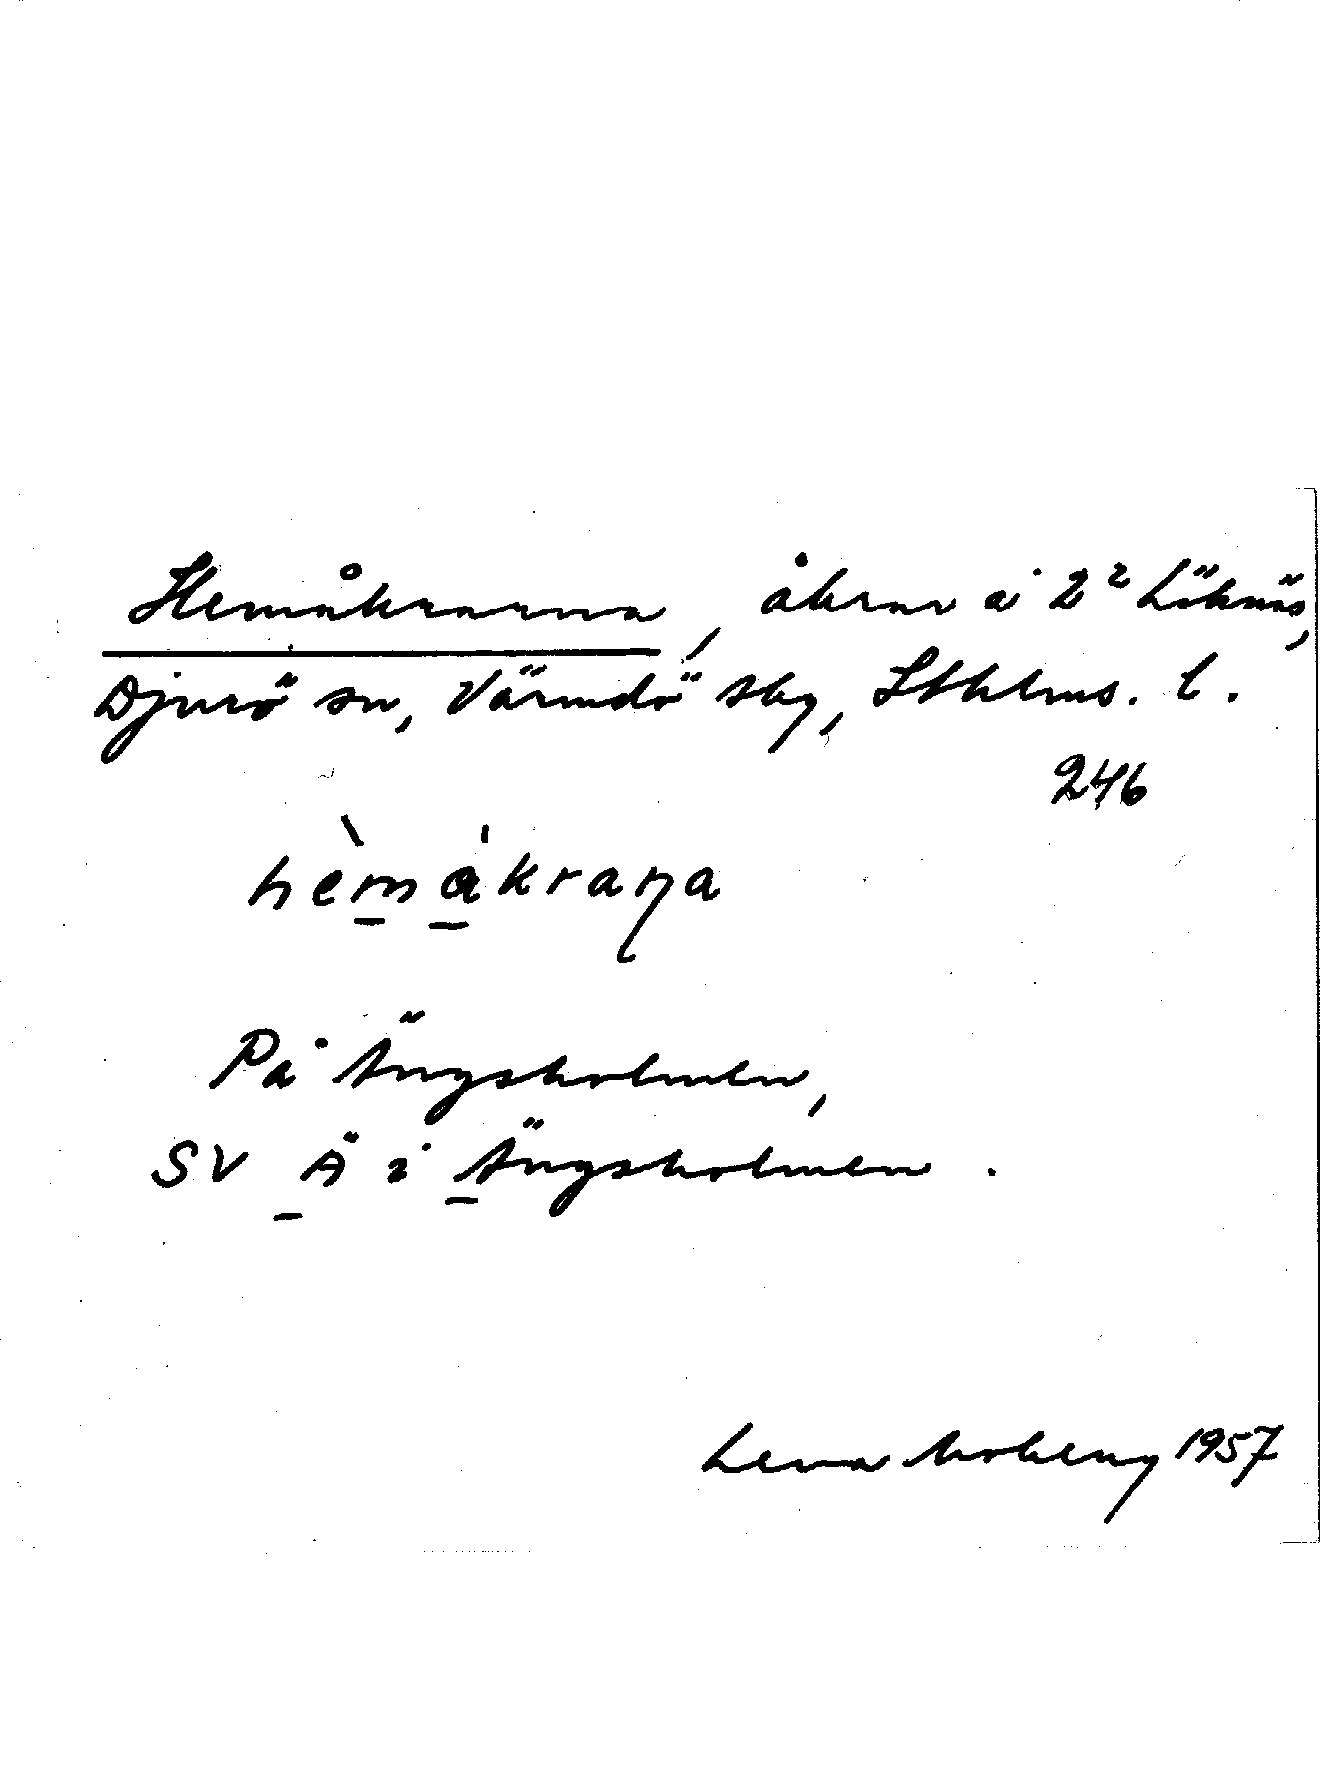 Hemåkrarna, åkrar å 2² Löknäs,
Djurö sn, Värmdö skg, Sthlms. l.
246
hèmåkraṇa
På Ängsholmen,
SV Ä i Ängsholmen.
Lena Moberg 1957